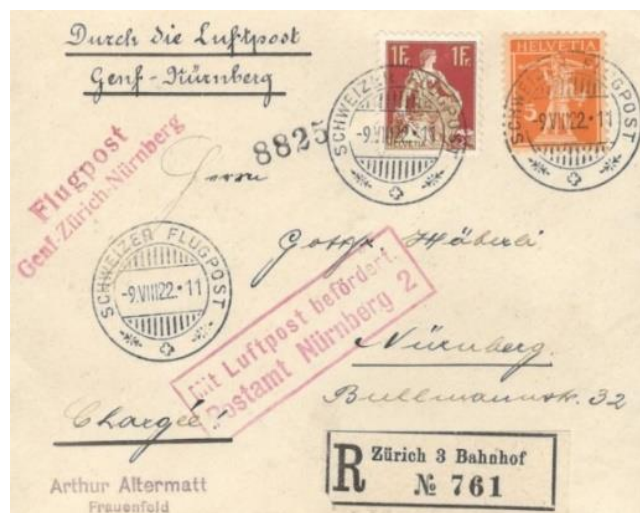 Durch die Luftpost
Genf-Nürnberg
1Fr. 1Fr.
HELVETIA
HELVETIA
5
SCHWEIZER FLUGPOST
-9.VIII.22.-11
SCHWEIZER FLUGPOST
-9.VIII.22.-11
8825
Flugpost
Genf-Zürich-Nürnberg
Herrn
SCHWEIZER FLUGPOST
-9.VIII.22.-11
Häberli
Mit Luftpost befördert.
Postamt Nürnberg 2
Nürnberg.
32
Chargée
R Zürich 3 Bahnhof
№ 761
Arthur Altermatt
Frauenfeld